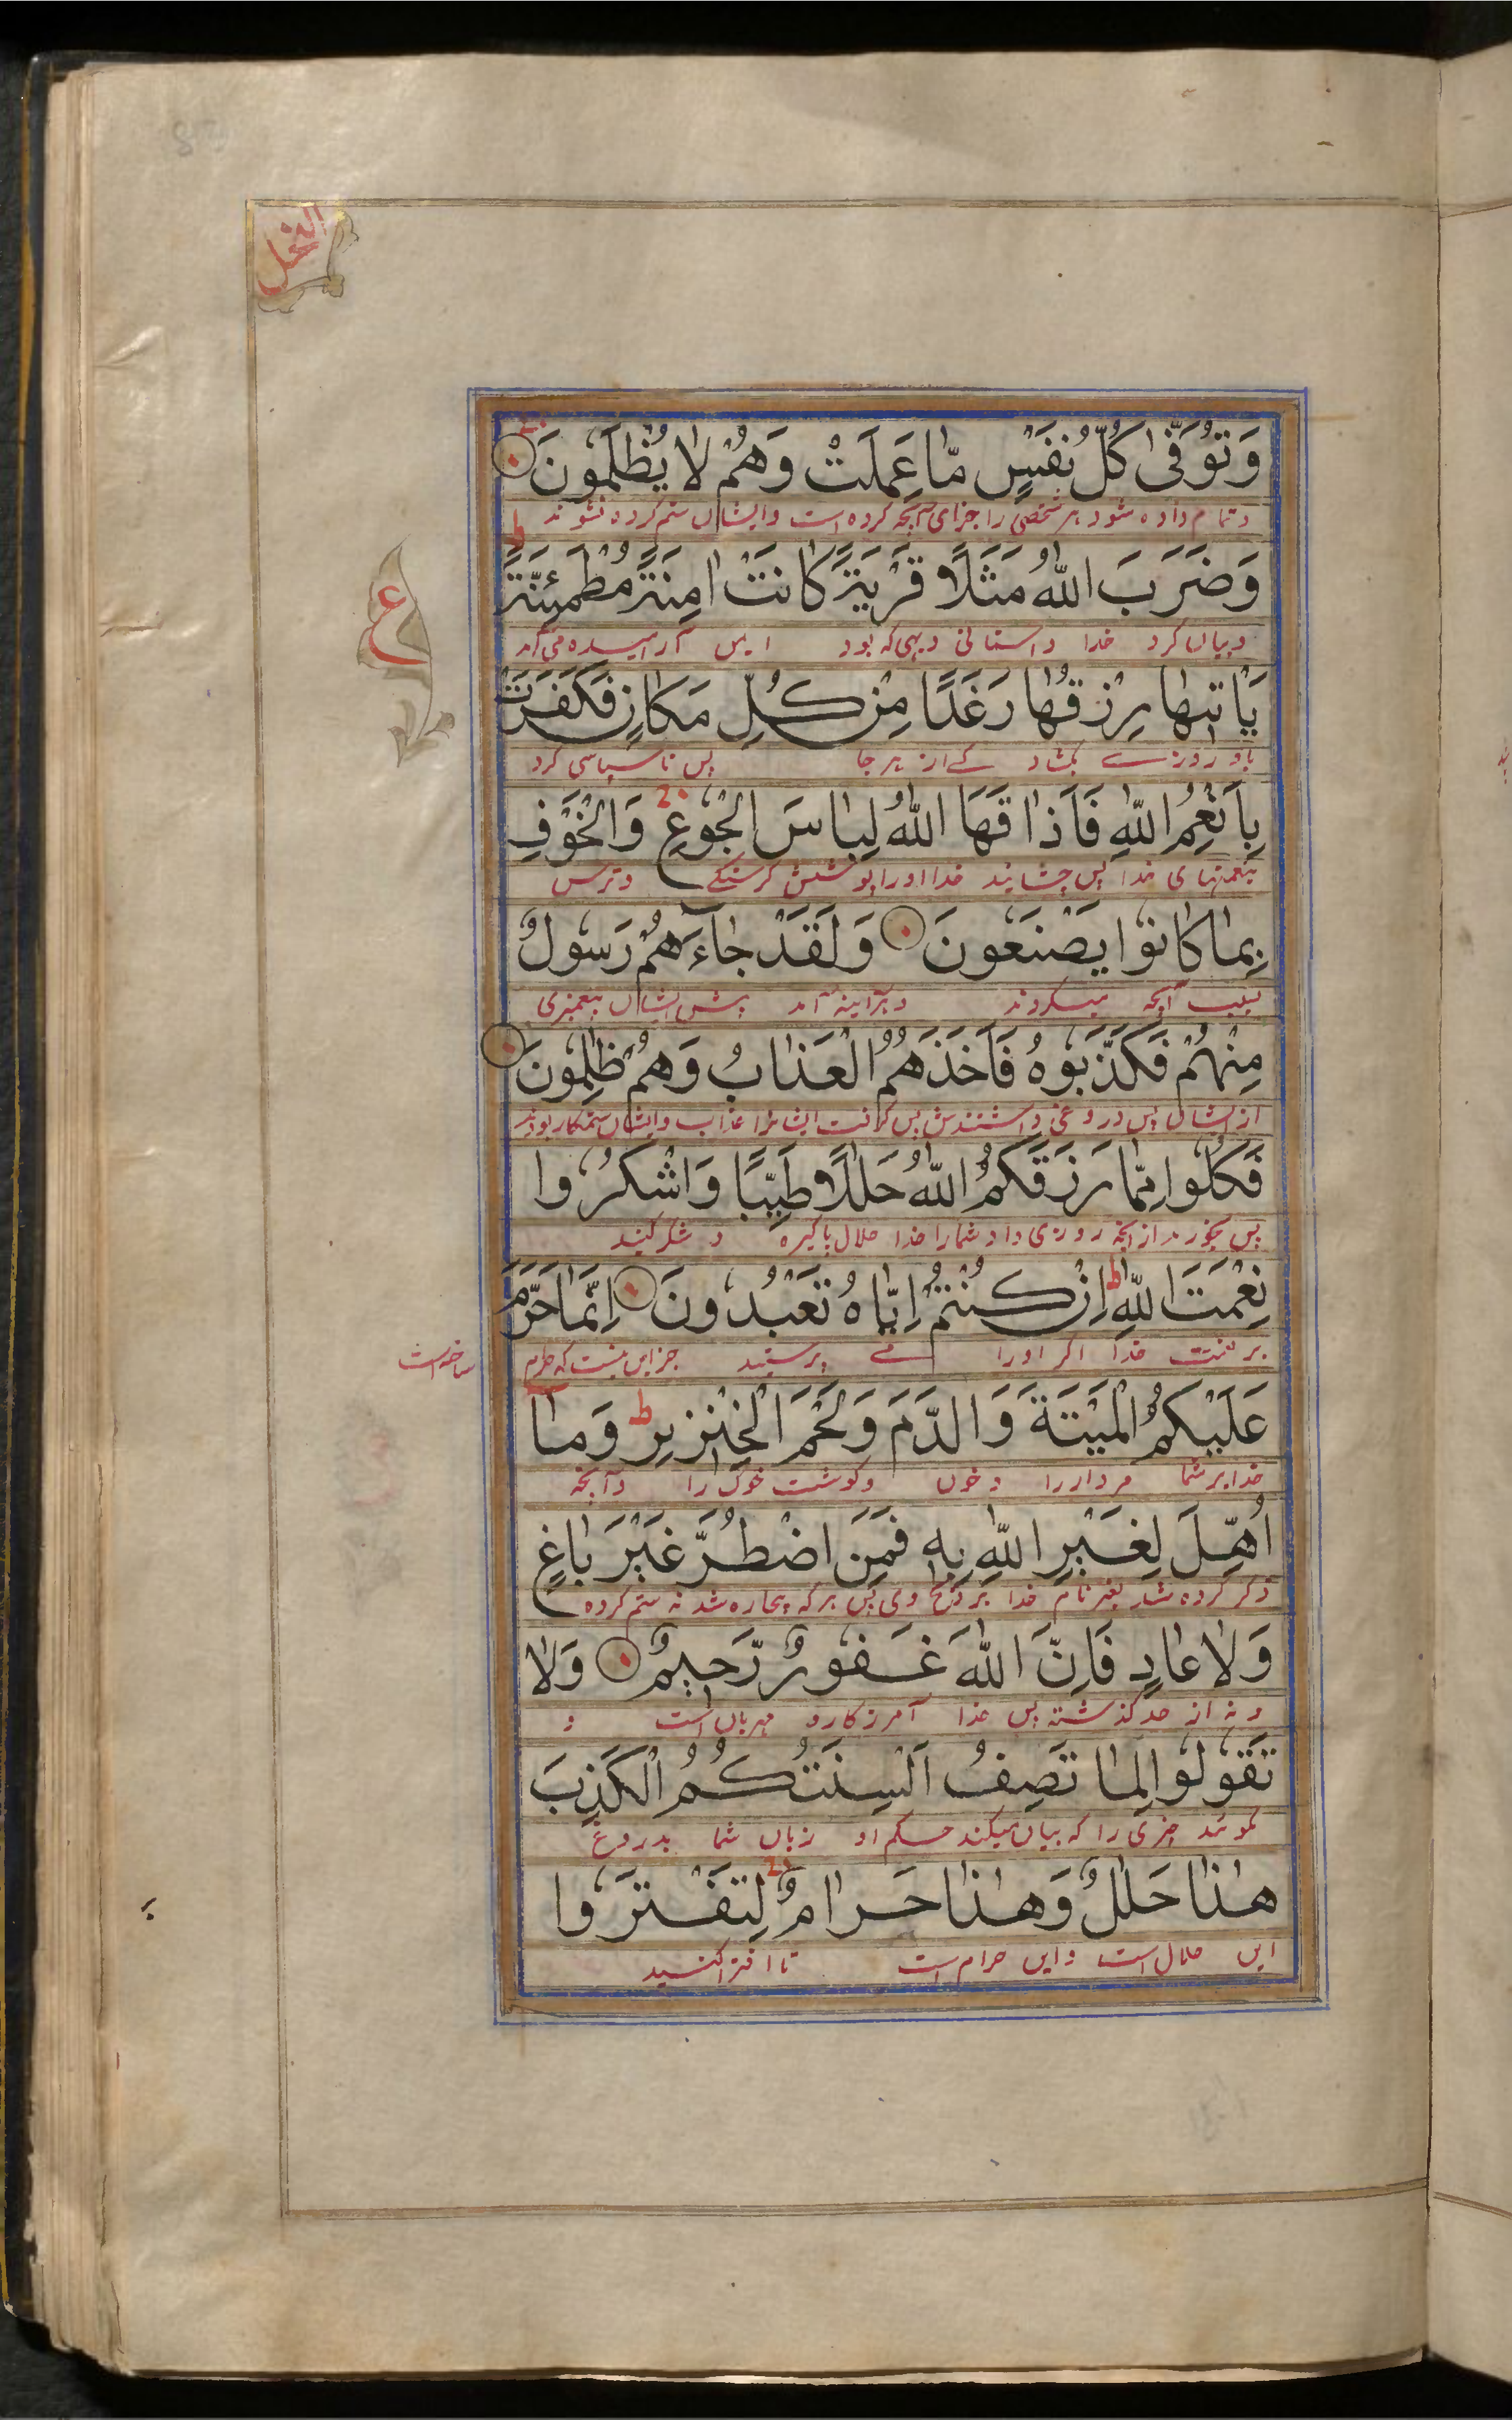 النحل
وَتُوَفّٰى كُلُّ نَفْسٍ مّٰا عَمِلَتْ وَهُمْ لٰا يُظْلَمُونَ
و تمام داده شود هر شخصی را جزای آنچه کرده است و ایشاں ستم کرده نشوند
ط
وَضَرَبَ اللّٰهُ مَثَلًا قَرْيَةً كٰانَتْ اٰمِنَةً مُطْمَئِنَّةً
و بیاں کرد خدا داستانی دیهی که بود ایمں آرامیده می آمد
ع
يَأْتِيهٰا رِزْقُهٰا رَغَدًا مِنْ كُلِّ مَكٰانٍ فَكَفَرَتْ
باو روزے بکشاد کے از هر جا پس ناسپاسی کرد
بِأَنْعُمِ اللّٰهِ فَأَذٰاقَهَا اللّٰهُ لِبٰاسَ الْجُوْعِ وَالْخَوْفِ
بنعمتهای خدا پس چشانید خدا او را پوشش کرسنکے و ترس
بِمٰا كٰانُوْا يَصْنَعُونَ وَلَقَدْ جٰآءَهُمْ رَسُولٌ
بسبب آنچه میکردند و هرآینه آمد پیش ایشاں پیغمبری
مِنْهُمْ فَكَذَّبُوهُ فَأَخَذَهُمُ الْعَذٰابُ وَهُمْ ظٰلِمُونَ
از ایشاں پس دروغی داشتندش پس کرفت ایشانرا عذاب و ایشاں ستمکار بودند
فَكُلُوا مِمّٰا رَزَقَكُمُ اللّٰهُ حَلٰلًا طَيِّبًا وَاشْكُرُوا
پس بخورید از آنچه روزی داد شما را خدا حلال پاکیزه و شکر کنید
نِعْمَتَ اللّٰهِ ط اِنْ كُنْتُمْ اِيّٰاهُ تَعْبُدُونَ اِنَّمٰا حَرَّمَ
بر نعمت خدا اکر او را مے پرستید جز ایں نیست که حرام
ساخته است
عَلَيْكُمُ الْمَيْتَةَ وَالدَّمَ وَلَحْمَ الْخِنْزِيرِ ط وَمٰا
خدا بر شما مردار را و خوں و کوشت خوک را و آنچه
اُهِلَّ لِغَيْرِ اللّٰهِ بِهٖ فَمَنِ اضْطُرَّ غَيْرَ بٰاغٍ
ذکر کرده شد بغیر نام خدا بر ذبح وی پس هر که بیچاره شد نه ستم کرده
وَلٰا عٰادٍ فَاِنَّ اللّٰهَ غَفُورٌ رَّحِيمٌ وَلٰا
و نه از حد کذشته پس خدا آمرزکار و مهربان است و
تَقُولُوا لِمٰا تَصِفُ اَلْسِنَتُكُمُ الْكَذِبَ
مکوئید چیزی را که بیاں میکند حکم او زباں شما بدروغ
هٰذٰا حَلٰلٌ وَهٰذٰا حَرٰامٌ لِتَفْتَرُوا
ایں حلال است و ایں حرام است تا افترا کنید